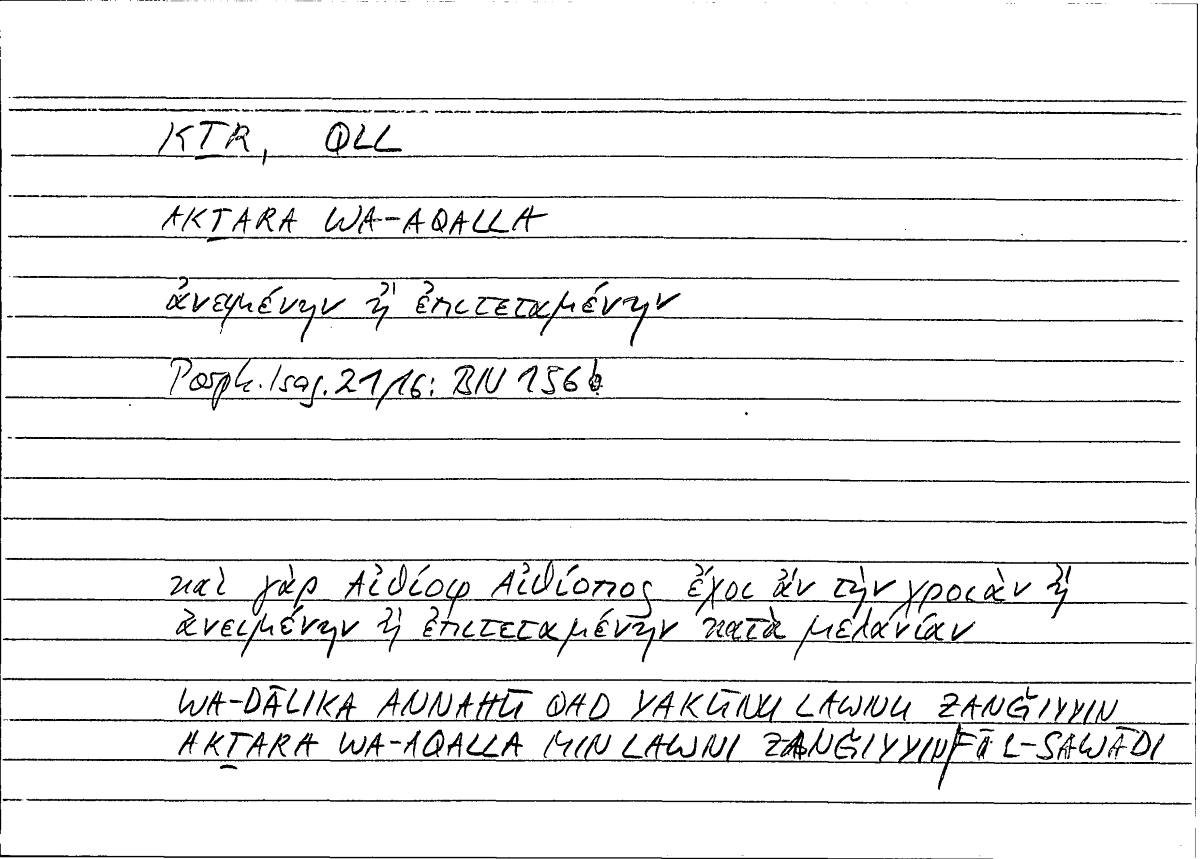 KṮR, QLL
AKṮARA WA-AQALLA
ἀνειμένην ἢ ἐπιτεταμένην
Porph. Isag. 21,16: BN 156b
καὶ γὰρ Αἰθίοψ Αἰθίοπος ἔχοι ἂν τὴν χροιὰν ἢ
ἀνειμένην ἢ ἐπιτεταμένην κατὰ μελανίαν
WA-DĀLIKA ANNAHŪ QAD YAKŪNU LAWNU ZANǦIYYIN
AKṮARA WA-AQALLA MIN LAWNI ZANǦIYYIN FĪ L-SAWĀDI